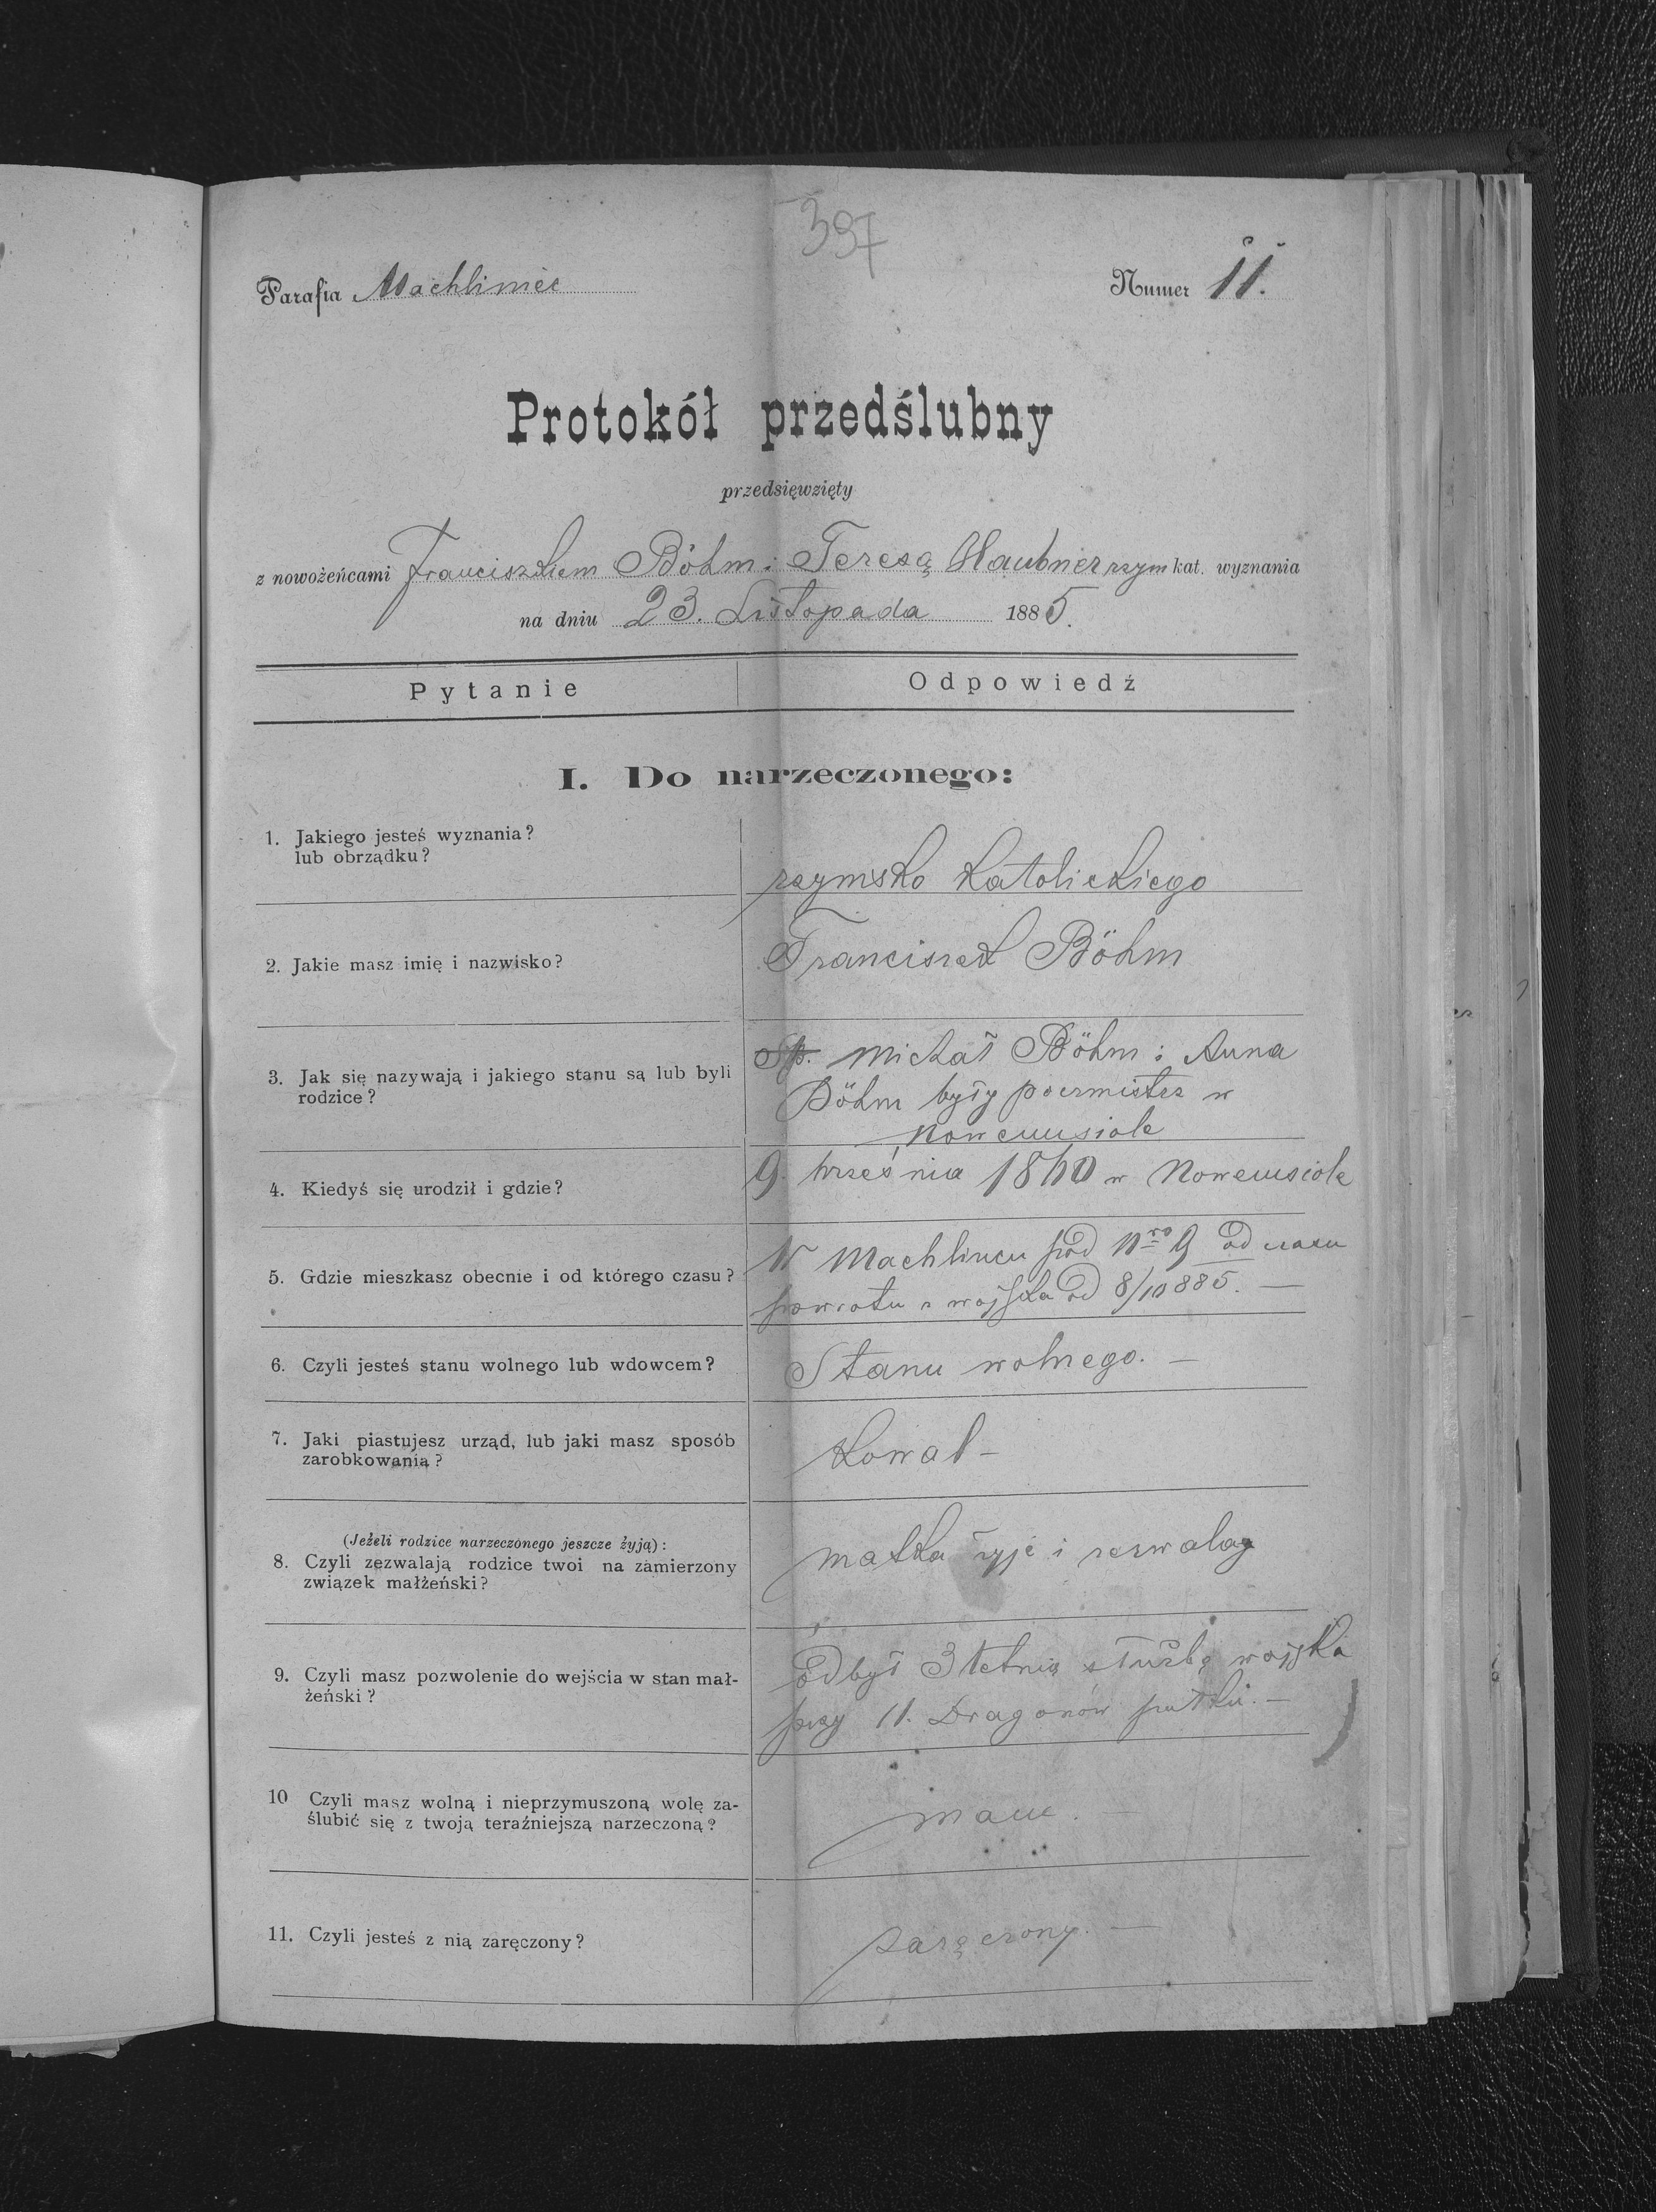 397
Parafia Machliniec
Numer 11.
Protokół przedślubny
przedsięwzięty
z nowożeńcami Franciszkiem Böhm i Teresą Haubner rzym kat. wyznania
na dniu 23. Listopada 1885.
Pytanie
Odpowiedź
I. Do narzeczonego:
1. Jakiego jesteś wyznania?
lub obrządku?
rzymsko katolickiego
2. Jakie masz imię i nazwisko?
Franciszek Böhm
3. Jak się nazywają i jakiego stanu są lub byli
rodzice?
Śp. Michał Böhm i Anna
Böhm były poczmistrz w
Nowemsiole
4. Kiedyś się urodził i gdzie?
9. września 1860 w Nowemsiole
5. Gdzie mieszkasz obecnie i od którego czasu?
W Machlincu pod Nro 9 od czasu
powrotu z wojska od 8/10 885. —
6. Czyli jesteś stanu wolnego lub wdowcem?
Stanu wolnego. —
7. Jaki piastujesz urząd, lub jaki masz sposób
zarobkowania?
Kowal —
(Jeżeli rodzice narzeczonego jeszcze żyją):
8. Czyli zezwalają rodzice twoi na zamierzony
związek małżeński?
matka żyje i zezwala
9. Czyli masz pozwolenie do wejścia w stan mał-
żeński?
odbył 3 letnią służbę wojska
przy 11. Dragonów pułku. —
10 Czyli masz wolną i nieprzymuszoną wolę za-
ślubić się z twoją teraźniejszą narzeczoną?
mam. —
11. Czyli jesteś z nią zaręczony?
zaręczony. —